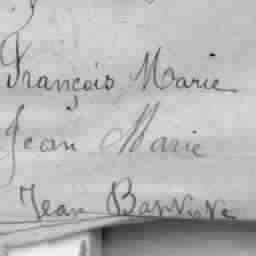 François Marie
Jean Marie
Jean Baptiste